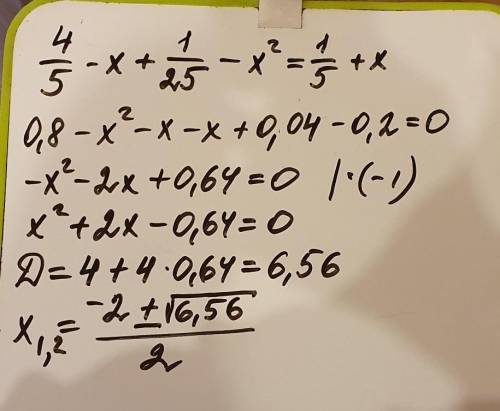 4/5 - x + 1/25 - x² = 1/5 + x
0,8 - x² - x - x + 0,04 - 0,2 = 0
-x² - 2x + 0,64 = 0 | · (-1)
x² + 2x - 0,64 = 0
D = 4 + 4 · 0,64 = 6,56
x₁,₂ = (-2 ± √6,56)/2